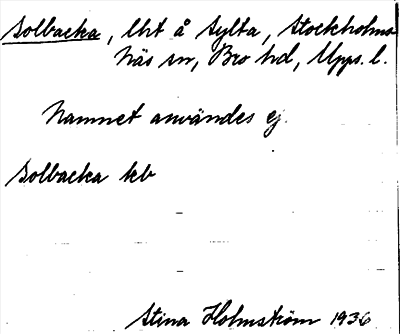 Solbacka, lht å Sylta, Stockholms-
Näs sn, Bro hd, Upps. l.
Namnet användes ej.
Solbacka kb
Stina Holmström 1936